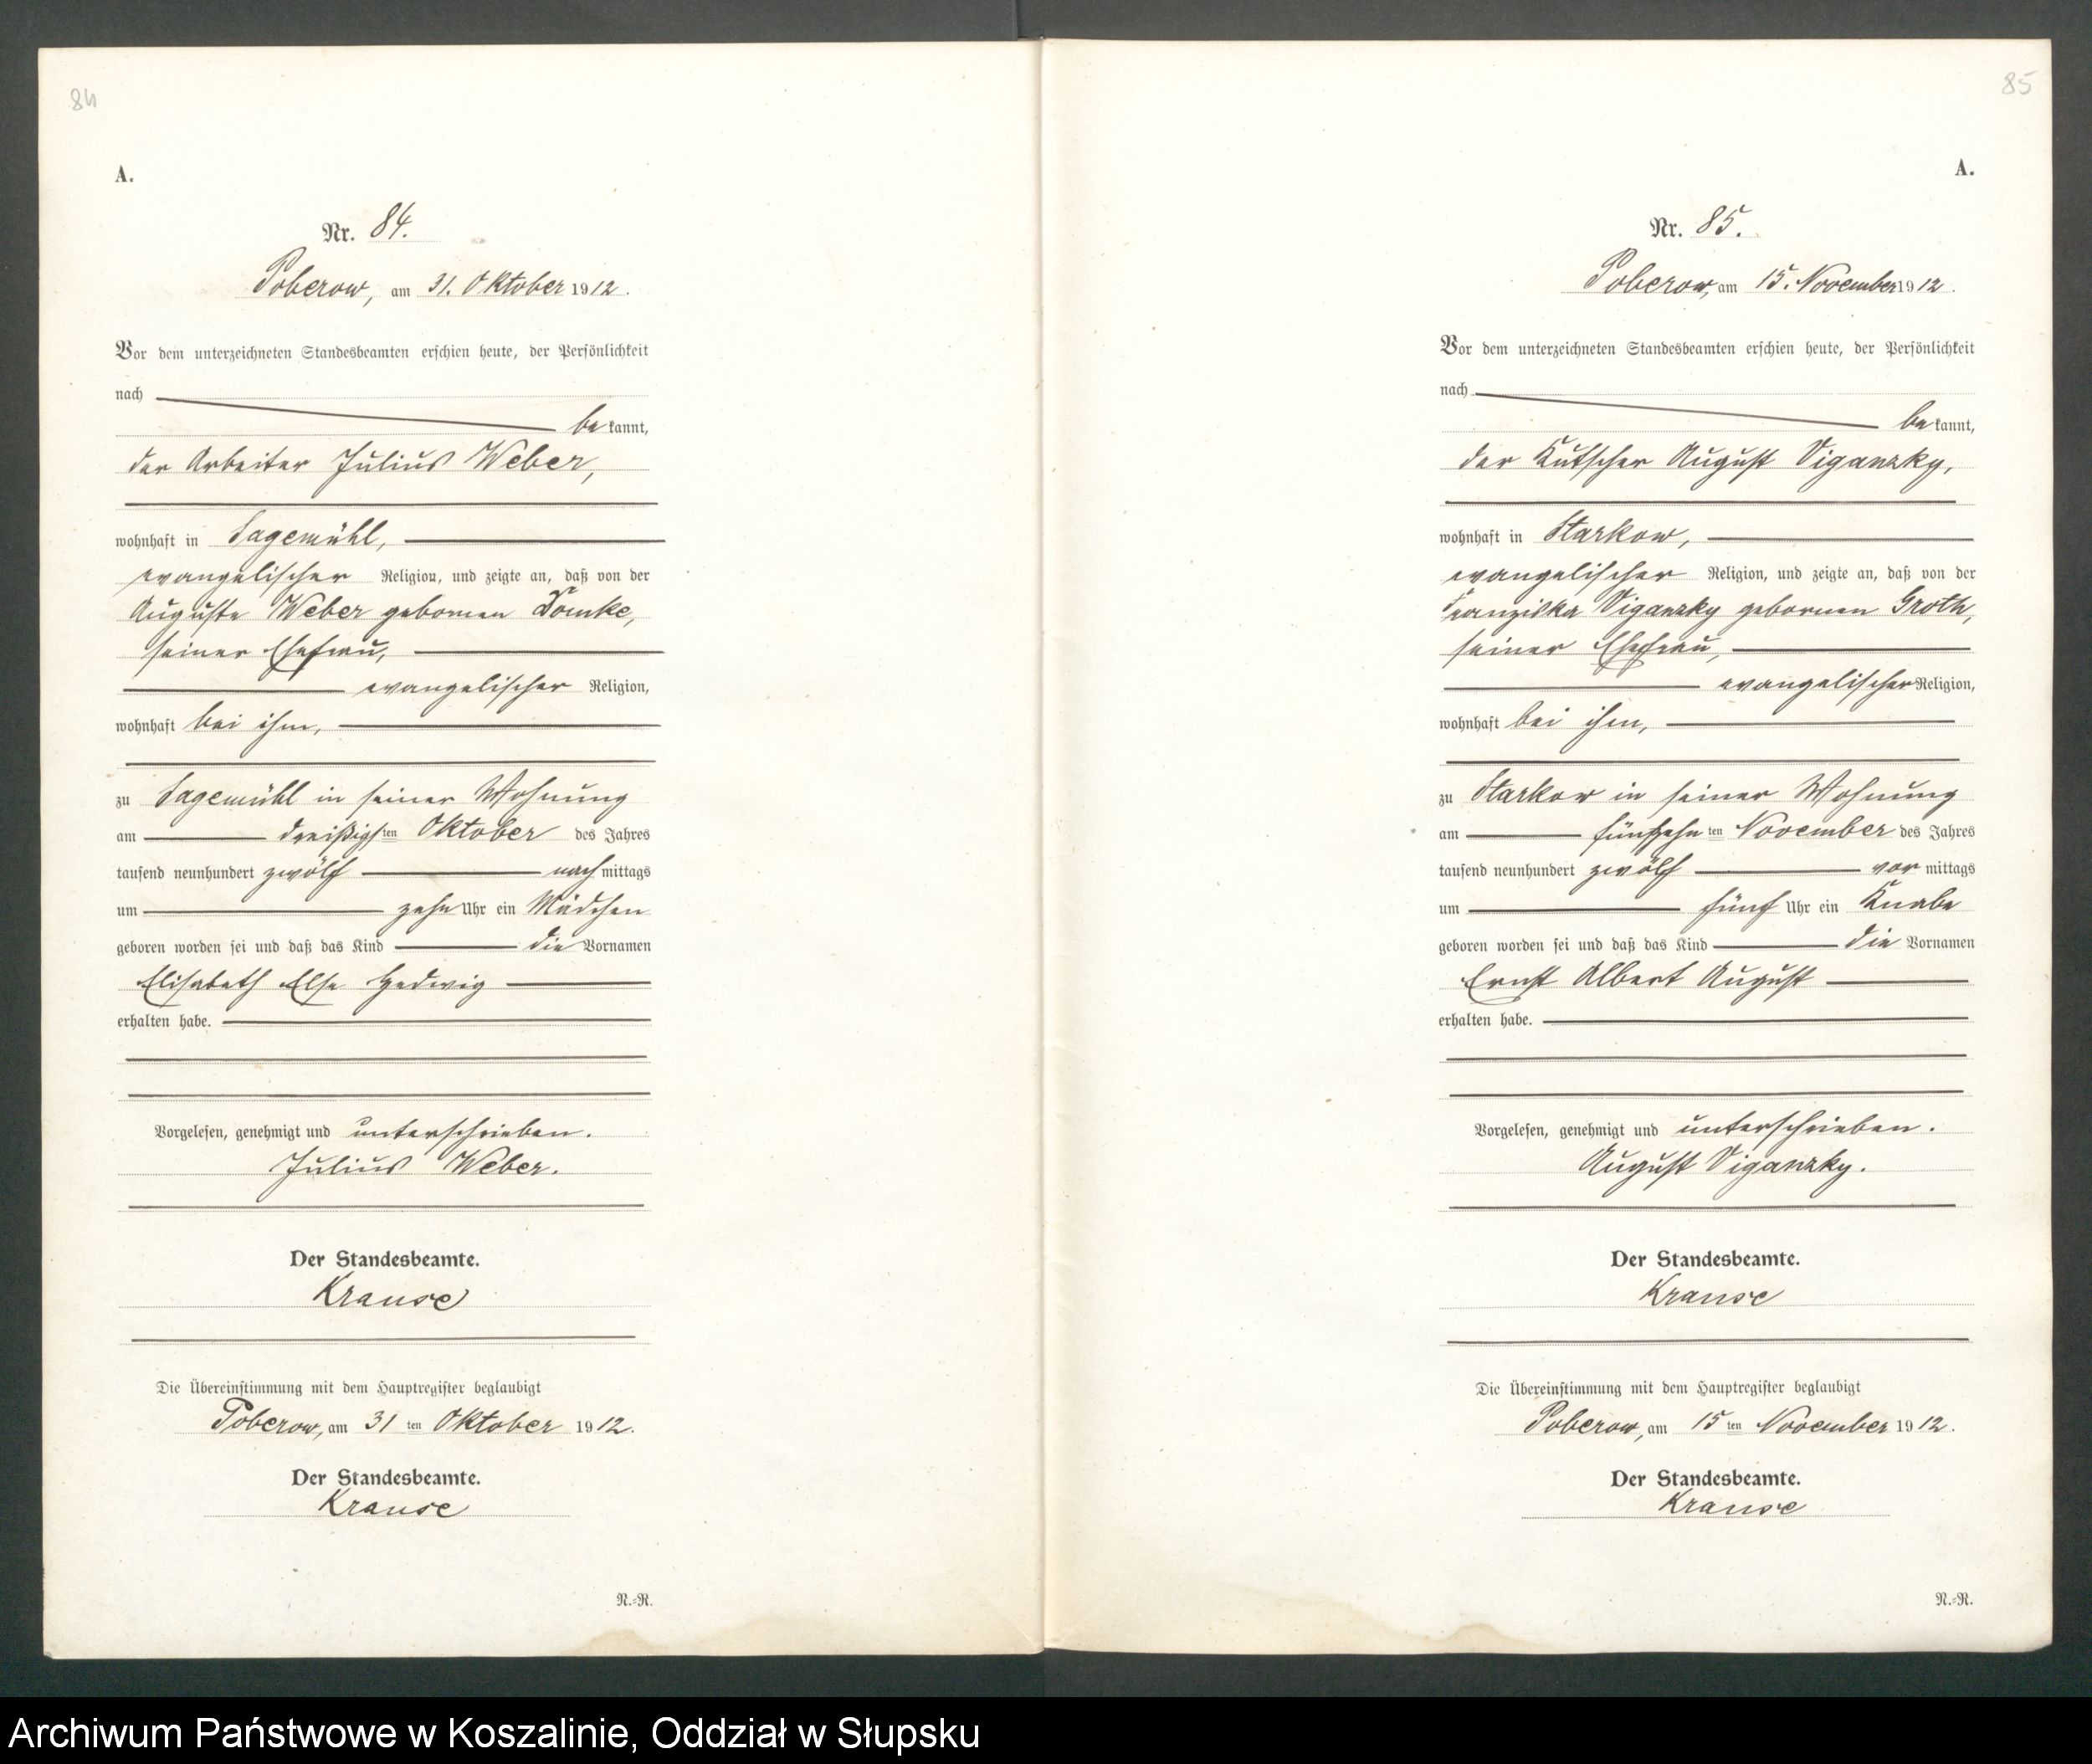 84
A.
Nr. 84.
Poberow, am 31. Oktober 1912.
Vor dem unterzeichneten Standesbeamten erschien heute, der Persönlichkeit
nach
bekannt,
der Arbeiter Julius Weber,
wohnhaft in Sagemühl,
evangelischer Religion, und zeigte an, daß von der
Auguste Weber gebornen Tomke,
seiner Ehefrau,
evangelischer Religion,
wohnhaft bei ihm,
zu Sagemühl in seiner Wohnung
am dreißigsten Oktober des Jahres
tausend neunhundert zwölf nachmittags
um zehn Uhr ein Mädchen
geboren worden sei und daß das Kind die Vornamen
Elisabeth Else Hedwig
erhalten habe.
Vorgelesen, genehmigt und unterschrieben.
Julius Weber.
Der Standesbeamte.
Krause
Die Übereinstimmung mit dem Hauptregister beglaubigt
Poberow, am 31 ten Oktober 1912.
Der Standesbeamte.
Krause
N.-R.
85
A.
Nr. 85.
Poberow, am 15. November 1912.
Vor dem unterzeichneten Standesbeamten erschien heute, der Persönlichkeit
nach
bekannt,
der Kutscher August Viganzky,
wohnhaft in Starkow,
evangelischer Religion, und zeigte an, daß von der
Franziska Viganzky gebornen Groth,
seiner Ehefrau,
evangelischer Religion,
wohnhaft bei ihm,
zu Starkow in seiner Wohnung
am fünfzehnten November des Jahres
tausend neunhundert zwölf vormittags
um fünf Uhr ein Knabe
geboren worden sei und daß das Kind die Vornamen
Ernst Albert August
erhalten habe.
Vorgelesen, genehmigt und unterschrieben.
August Viganzky.
Der Standesbeamte.
Krause
Die Übereinstimmung mit dem Hauptregister beglaubigt
Poberow, am 15 ten November 1912.
Der Standesbeamte.
Krause
N.-R.
Archiwum Państwowe w Koszalinie, Oddział w Słupsku